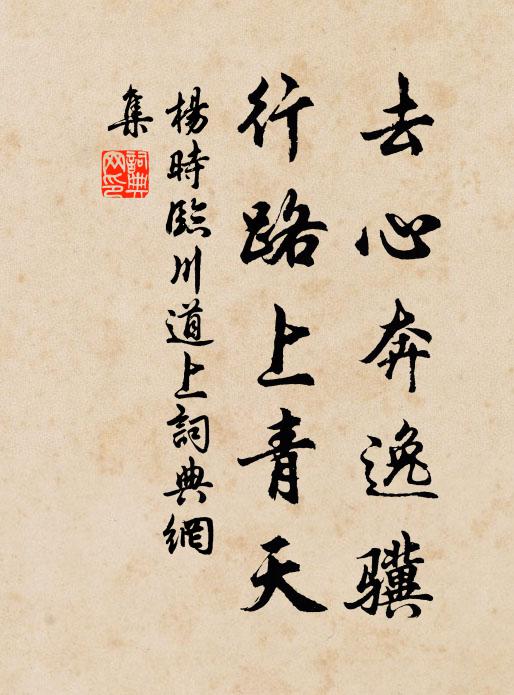 去心奔逸骥
行路上青天
楊時臨川道上詞典網
集
詞典
网印